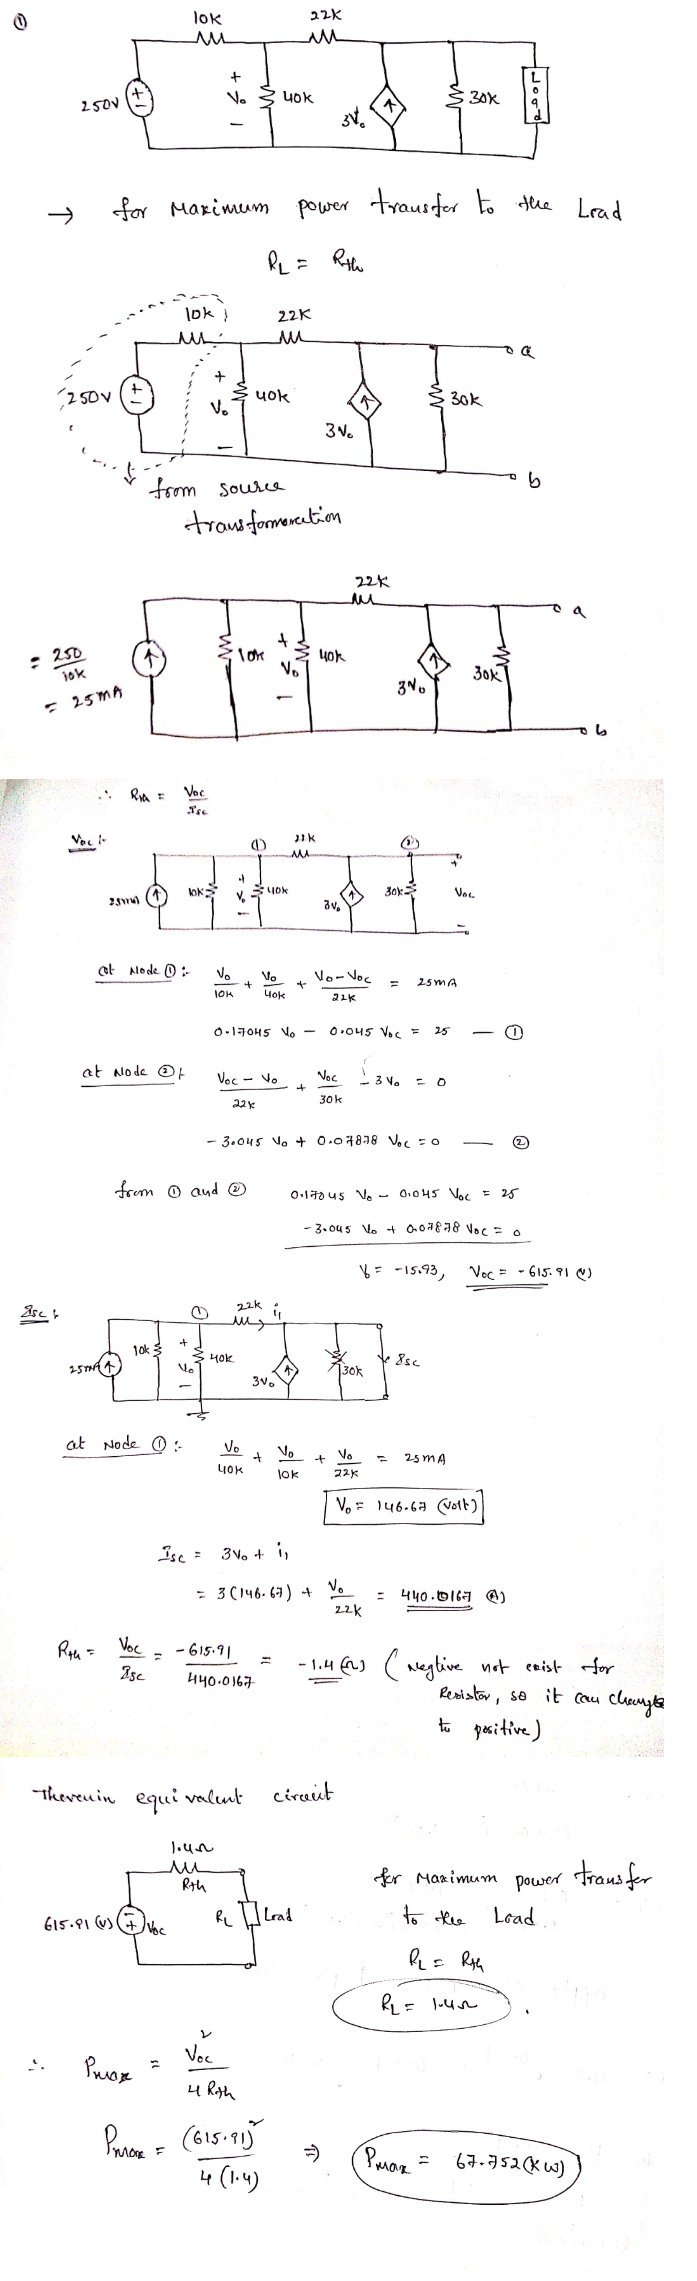 ①
10K 22K
250V + Vo - 40K 3Vo 30K Load
→ for Maximum power transfer to the Load
RL = Rth
10k 22K
250V + Vo - 40K 3Vo 30K a b
from source
transformoration
22K
= 250/10K 10K + Vo - 40K 3Vo 30K a b
= 25mA
∴ Rth = Voc/Isc
Voc :-
① 22K ②
25mA 10K + Vo - 40K 3Vo 30K + Voc -
at Node ① :- Vo/10K + Vo/40K + Vo-Voc/22K = 25mA
0.17045 Vo - 0.045 Voc = 25 — ①
at Node ② :- Voc-Vo/22K + Voc/30K - 3Vo = 0
- 3.045 Vo + 0.07878 Voc = 0 — ②
from ① and ② 0.17045 Vo - 0.045 Voc = 25
-3.045 Vo + 0.07878 Voc = 0
Vo = -15.93, Voc = -615.91 (V)
Isc :-
① 22K i1
25mA 10K + Vo - 40K 3Vo 30K Isc
at Node ① :- Vo/40K + Vo/10K + Vo/22K = 25mA
Vo = 146.67 (volt)
Isc = 3Vo + i1
= 3(146.67) + Vo/22K = 440.0167 (A)
Rth = Voc/Isc = -615.91/440.0167 = -1.4 (Ω) ( Neglive not exist for
Resistor, so it can change
to positive)
Thevenin equivalent circuit
1.4Ω
Rth
615.91 (V) - + Voc RL Load
for Maximum power transfer
to the Load.
RL = Rth
RL = 1.4Ω .
∴ Pmax = Voc²/4 Rth
Pmax = (615.91)²/4 (1.4) ⇒ Pmax = 67.752 (KW)